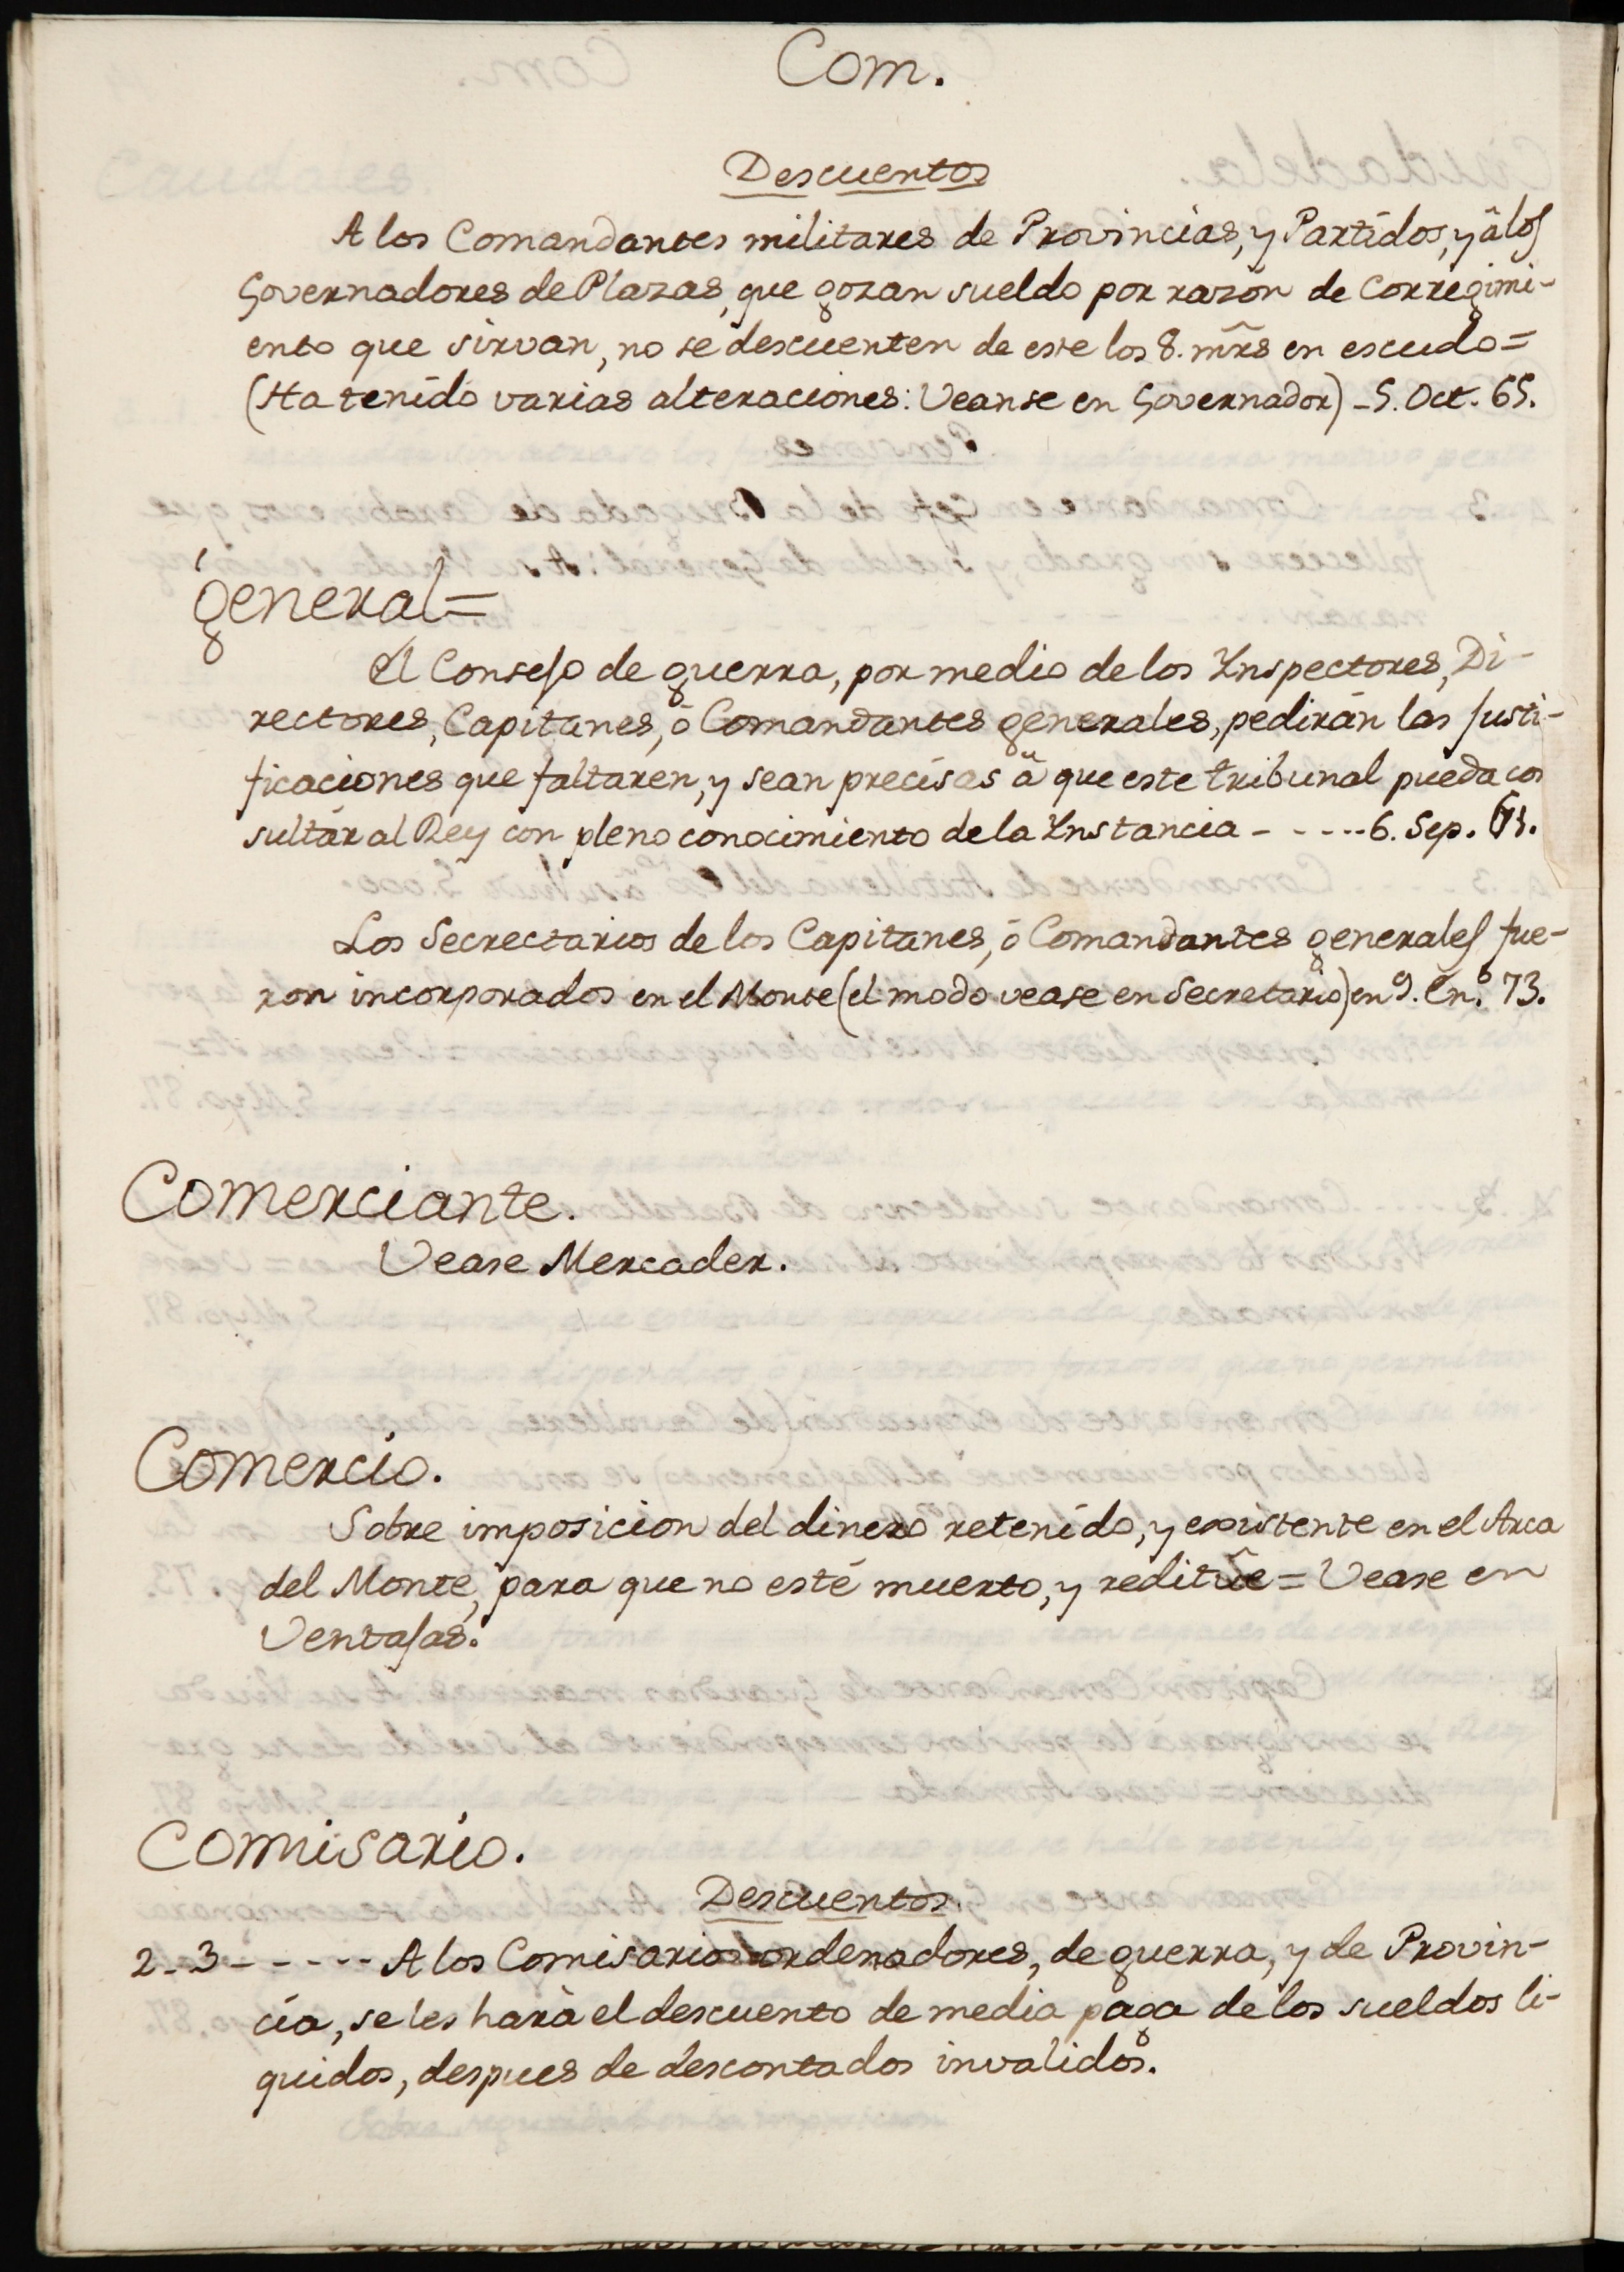 Com.
Descuentos
A los Comandantes militares de Provincias, y Partidos, y â los
Governadores de Plazas, que gozan sueldo por razon de Corregimi-
ento que sirvan, no se descuenten de este los 8. mrs̃ en escudo =
(Ha tenido varias alteraciones: Veanse en Governador) - 5. Oct. 65.
general =
El Consejo de guerra, por medio de los Ynspectores, Di-
rectores, Capitanes, ó Comandantes generales, pedirán las justi-
ficaciones que faltaren, y sean precisas â que este tribunal pueda con
sultár al Rey con pleno conocimiento de la Ynstancia - - - - - 6. Sep.
Los Secrectarios de los Capitanes, ó Comandantes generales fue-
ron incorporados en el Monte (el modo vease en Secretario) en 9. En.º 73.
Comerciante.
Vease Mercader.
Comercio.
Sobre imposicion del dinero retenido, y existente en el Arca
del Monte, para que no esté muerto, y reditûe = Vease en
Ventajas.
Comisario.
Descuentos.
2.. 3 - - - - - A los Comisarios ordenadores, de guerra, y de Provin-
cia, se les hará el descuento de media paga de los sueldos li-
quidos, despues de descontados invalidos.